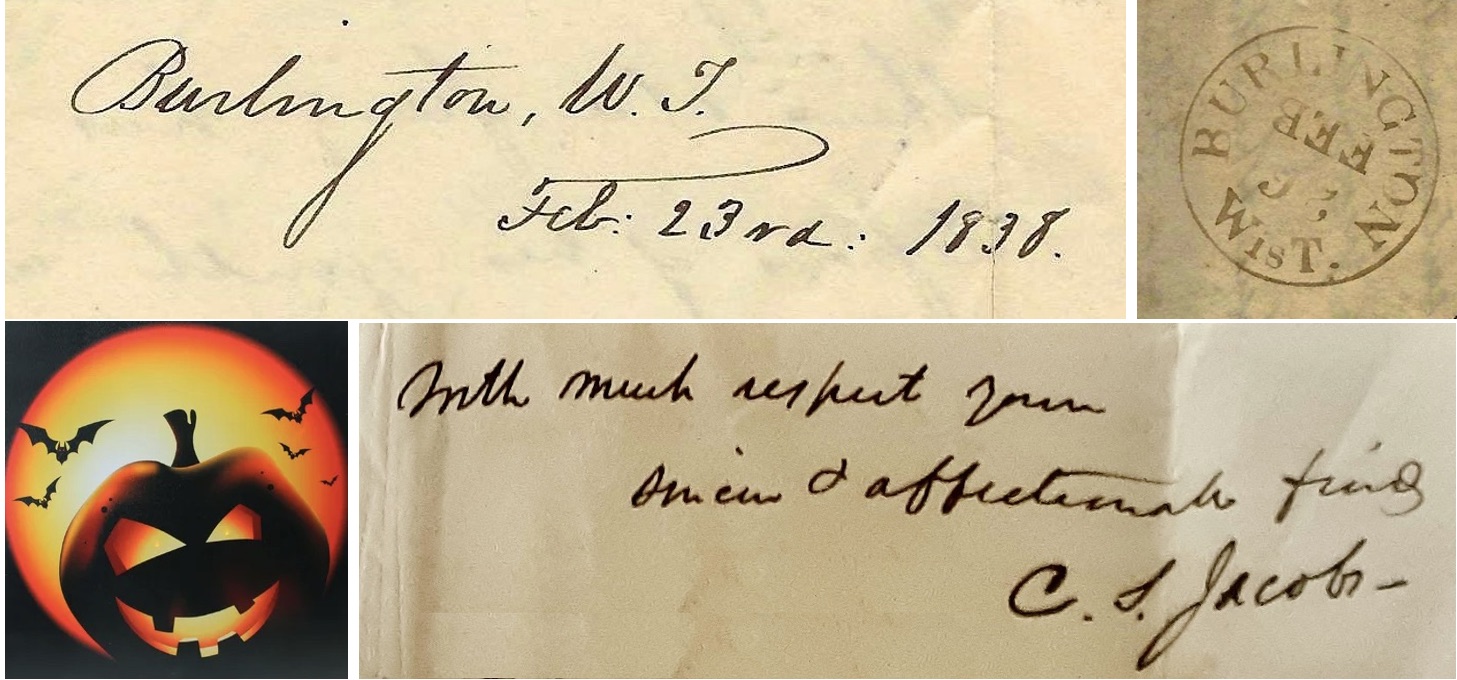 Burlington, W. T.
Feb: 23rd: 1838.
BURLINGTON
FEB
WisT.
With much respect your
sincere & affectionate friend
C. S. Jacobs-